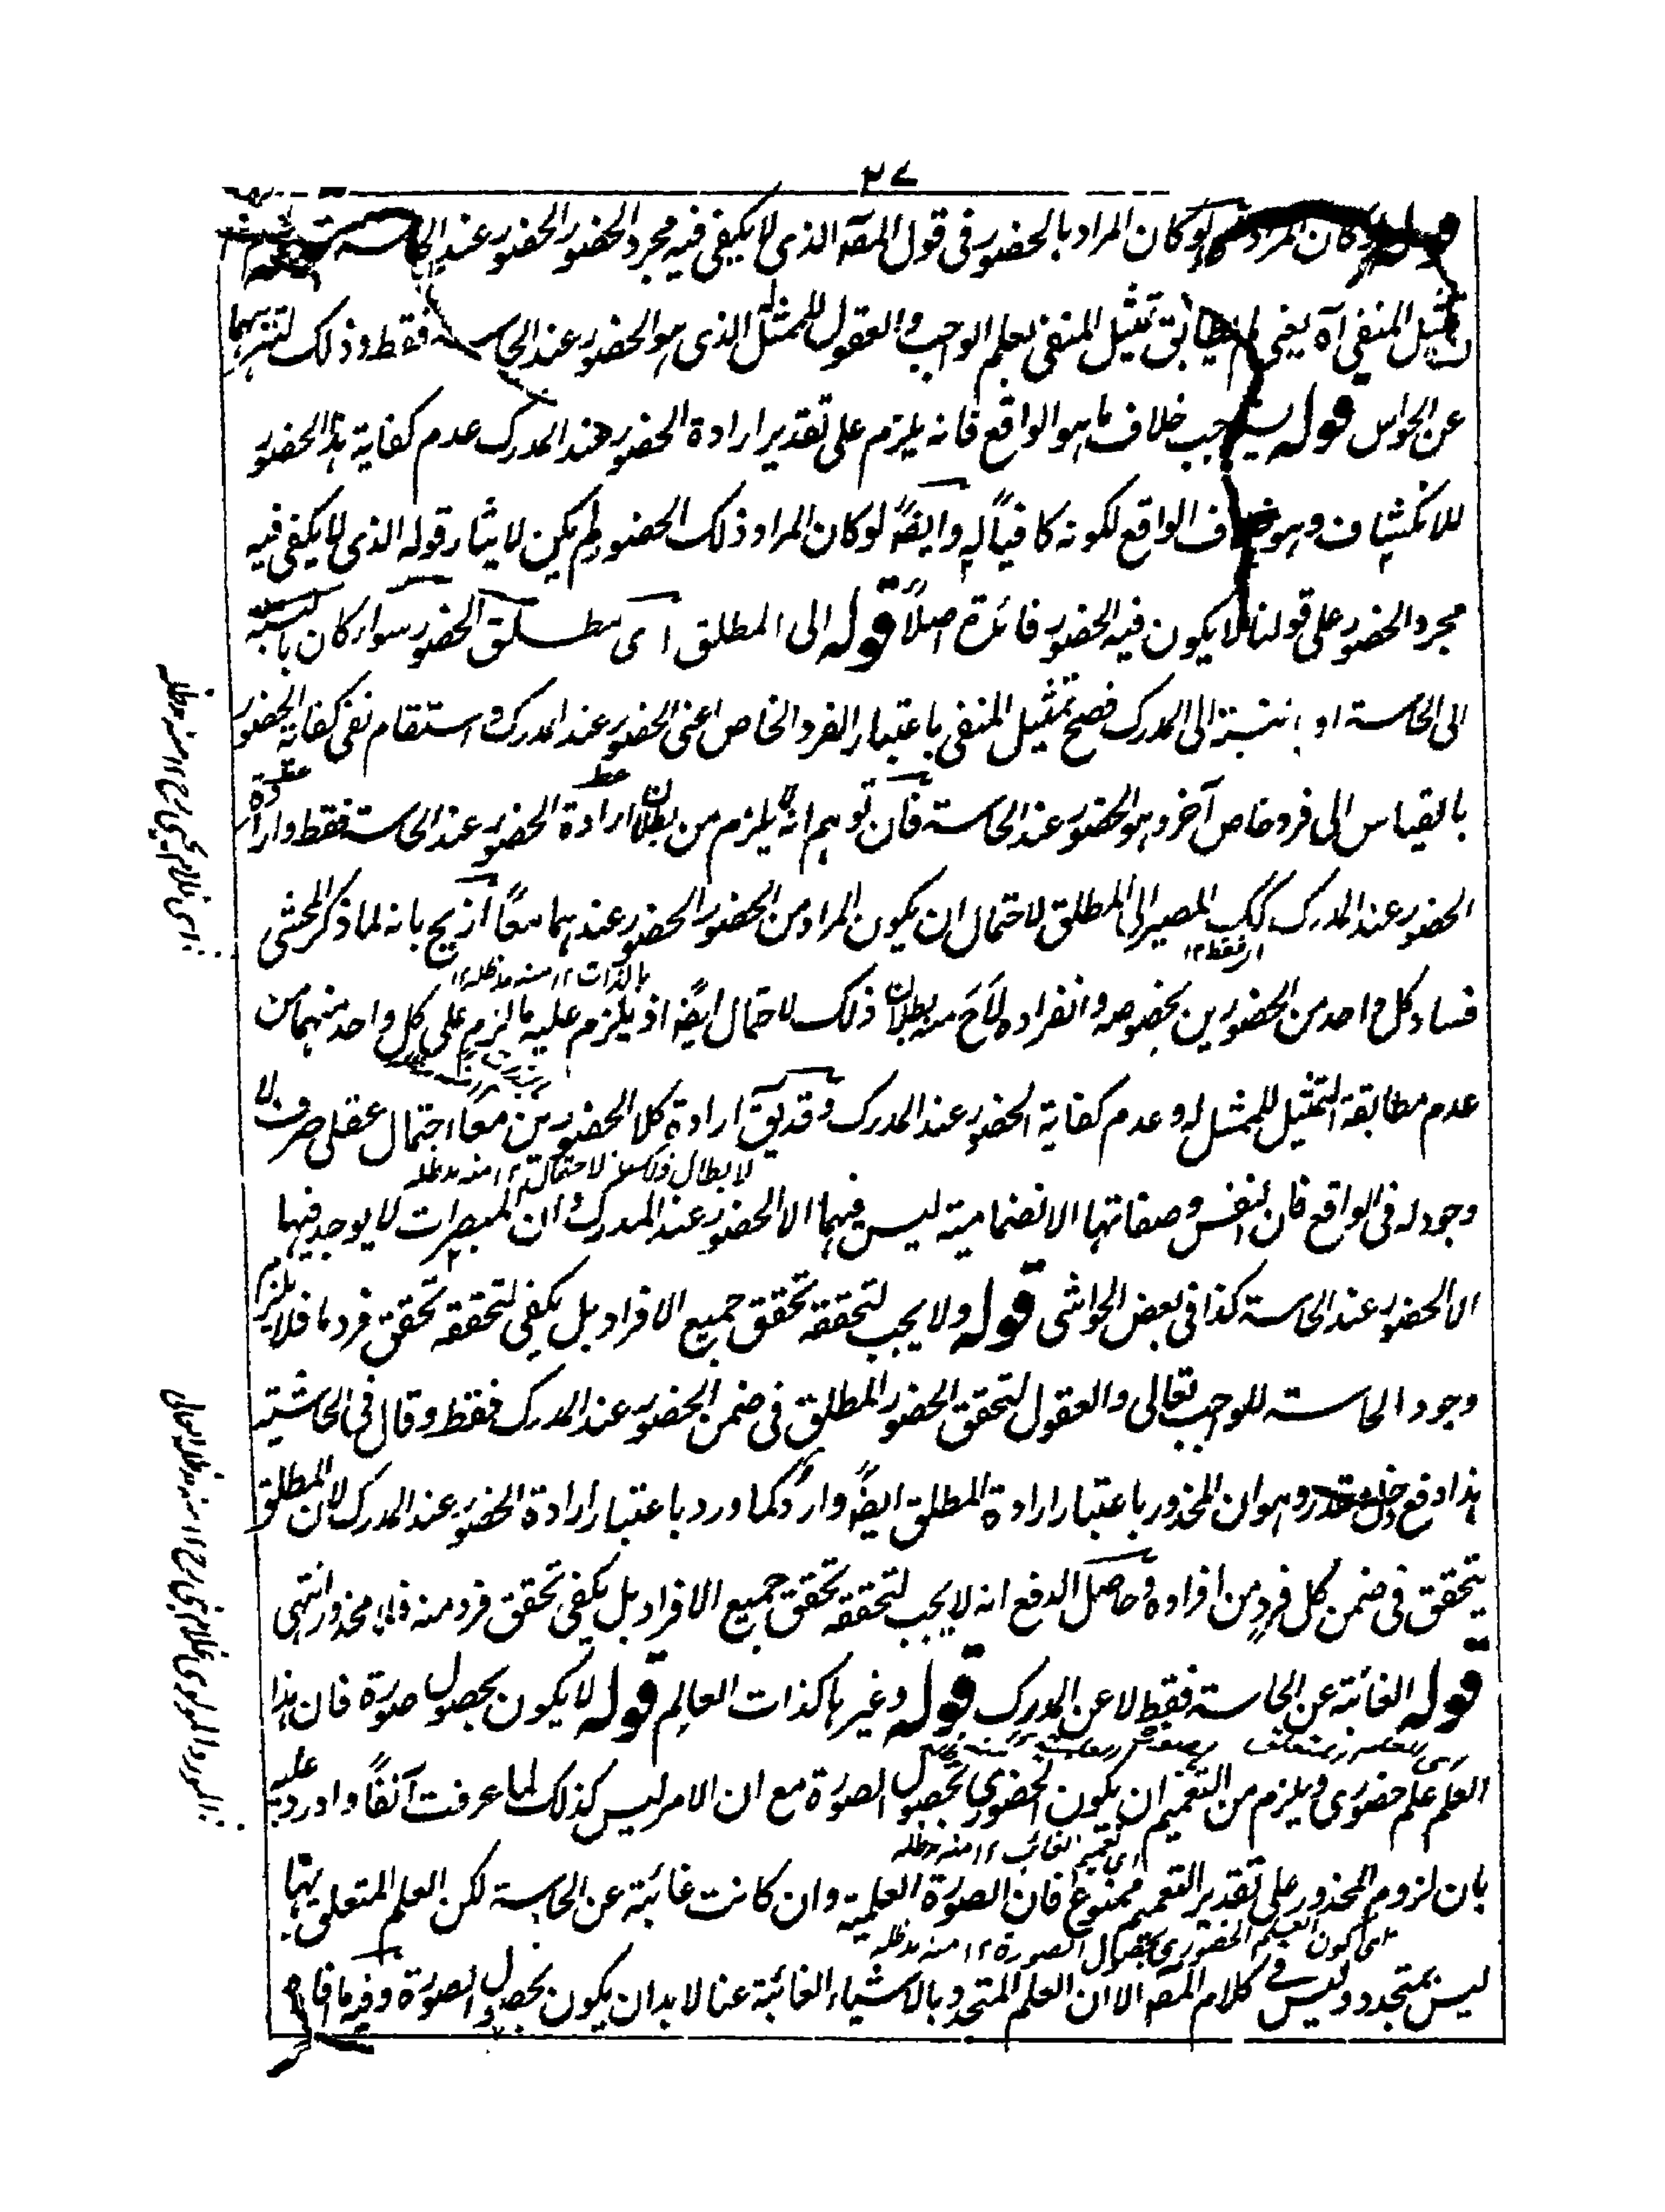 ٢٧
كان المراد لو كان المراد بالحضور فى قول المصه الذى لا يكفى فيه مجرد الحضور الحضور عند الحاسة
تمثيل المنفى آه يعنى لم يطابق تمثيل المنفى بعلم الواجب والعقول للممثل الذى هو الحضور عند الحاسة فقط وذلك لتنزيههما
عن الحواس قوله يستوجب خلاف ما هو الواقع فانه يلزم على تقدير ارادة الحضور عند المدرك عدم كفاية هذا الحضور
للانكشاف وهو خلاف الواقع لكونه كافياً له وايضًا لو كان المراد ذلك الحضور لم يكن لايثار قوله الذى لا يكفى فيه
مجرد الحضور على قولنا لا يكون فيه الحضور فائدة اصلاً قوله الى المطلق اى مطلق الحضور سواء كان بالنسبة
الى الحاسة او بالنسبة الى المدرك فصح تمثيل المنفى باعتبار الفرد الخاص اعنى الحضور عند المدرك واستقام نفى كفاية الحضور
بالقياس الى فرد خاص آخر وهو الحضور عند الحاسة فان توهم انه لا يلزم من بطلان ارادة الحضور عند الحاسة فقط وارادة
الحضور عند المدرك كك المصير الى المطلق لاحتمال ان يكون المراد من الحضور الحضور عندهما معًا ازيح بانه لما ذكر المحشى
اى فقط ١٢
بالذات ١٢ منه مدظله
فساد كل واحد من الحضورين بخصوصه وانفراده لاح منه بطلان ذلك الاحتمال ايضًا اذ يلزم عليه ما لزم على كل واحد منهما من
عدم مطابقة التمثيل للممثل له وعدم كفاية الحضور عند المدرك وقد يق ارادة كلا الحضورين معا احتمال عقلى صرف لا
لابطال ذلك الاحتمال ١٢ منه مدظله
وجود له فى الواقع فان النفس وصفاتها الانضمامية ليس فيهما الا الحضور عند المدرك وان المبصرات لا يوجد فيها
الا الحضور عند الحاسة كذا فى بعض الحواشى قوله ولا يجب لتحققه تحقق جميع الافراد بل يكفى لتحققه تحقق فرد ما فلا يلزم
وجود الحاسة للواجب تعالى والعقول لتحقق الحضور المطلق فى ضمن الحضور عند المدرك فقط وقال فى الحاشية
هذا دفع دخل مقدر وهو ان المحذور باعتبار ارادة المطلق ايضًا وارد كما ورد باعتبار ارادة الحضور عند المدرك لان المطلق
يتحقق فى ضمن كل فرد من افراده وحاصل الدفع انه لا يجب لتحققه تحقق جميع الافراد بل يكفى تحقق فرد منه فلا محذور انتهى
قوله الغائبة عن الحاسة فقط لا عن المدرك قوله وغيرها كذات العالم قوله لا يكون بحصول صورة فان هذا
العلم علم حضورى ويلزم من التعميم ان يكون الحضورى بحصول الصورة مع ان الامر ليس كذلك لما عرفت آنفًا واورد عليه
اى تعميم الغائب ١٢ منه مدظله
بان لزوم المحذور على تقدير التعميم ممنوع فان الصورة العلمية وان كانت غائبة عن الحاسة لكن العلم المتعلق بها
اى كون العلم الحضورى بحصول الصورة ١٢ منه مدظله
ليس بمتجدد وليس فى كلام المصه الا ان العلم المتجدد بالاشياء الغائبة عنا لابد ان يكون بحصول الصورة وفيه ما فافهم